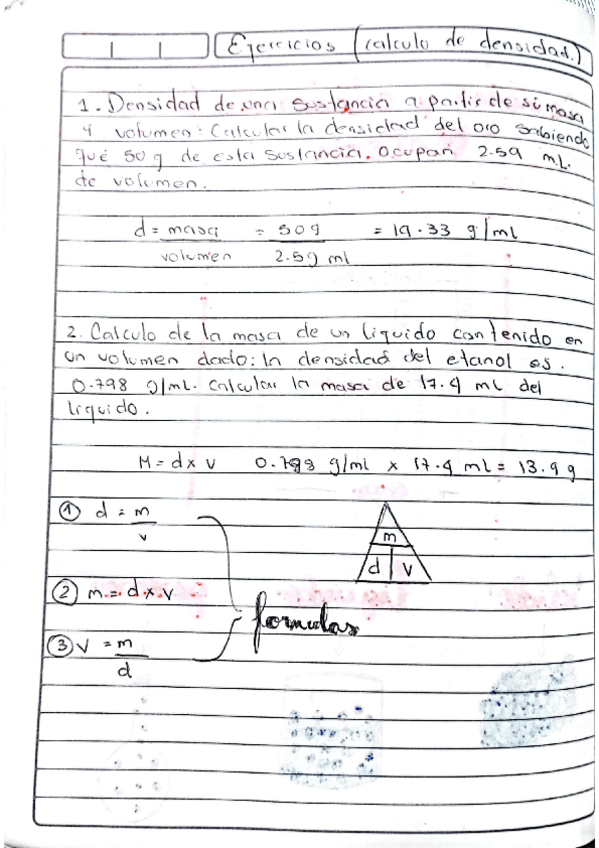 Ejercicios (calculo de densidad.)
1. Densidad de una sustancia a partir de si masa
y volumen: Calcular la densidad del oro sabiendo
qué 50 g de esta sustancia. Ocupan 2.59 mL.
de volumen.
d = masa = 50g = 19.33 g/ml
volumen 2.59 ml
2. Calculo de la masa de un liquido contenido en
un volumen dado: la densidad del etanol es.
0.798 g/mL. Calcular la masa de 17.4 mL del
liquido.
M = d x v 0.798 g/ml x 17.4 mL = 13.9 g
① d = m
v
m
d v
② m = d x v
formulas
③ v = m
d